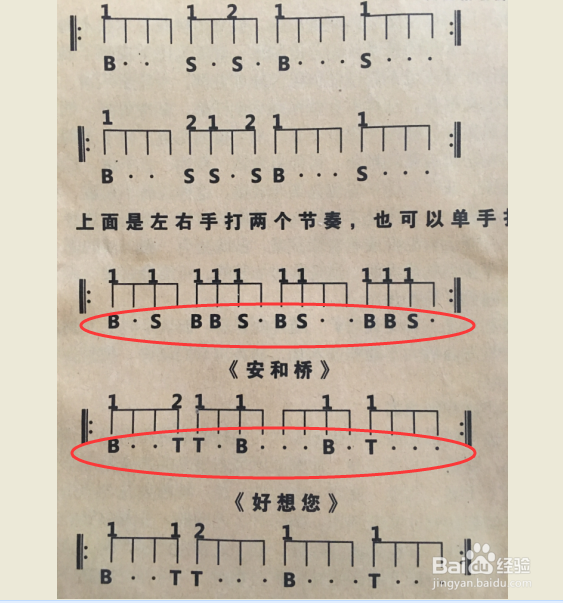 1 1 2 1 1
B · · S · S · B · · · S · · ·
1 2 1 2 1 1
B · · S S · S B · · · S · · ·
上面是左右手打两个节奏，也可以单手
1 1 1 1 1 1 1 1 1 1
B · S B B S · B S · · B B S ·
《安和桥》
1 2 1 1 1 1
B · · T T · B · · · B · T · · ·
《好想您》
1 1 2 1 1
B · · T T · · · B · · · T · · ·
Baidu 经验
jingyan.baidu.com